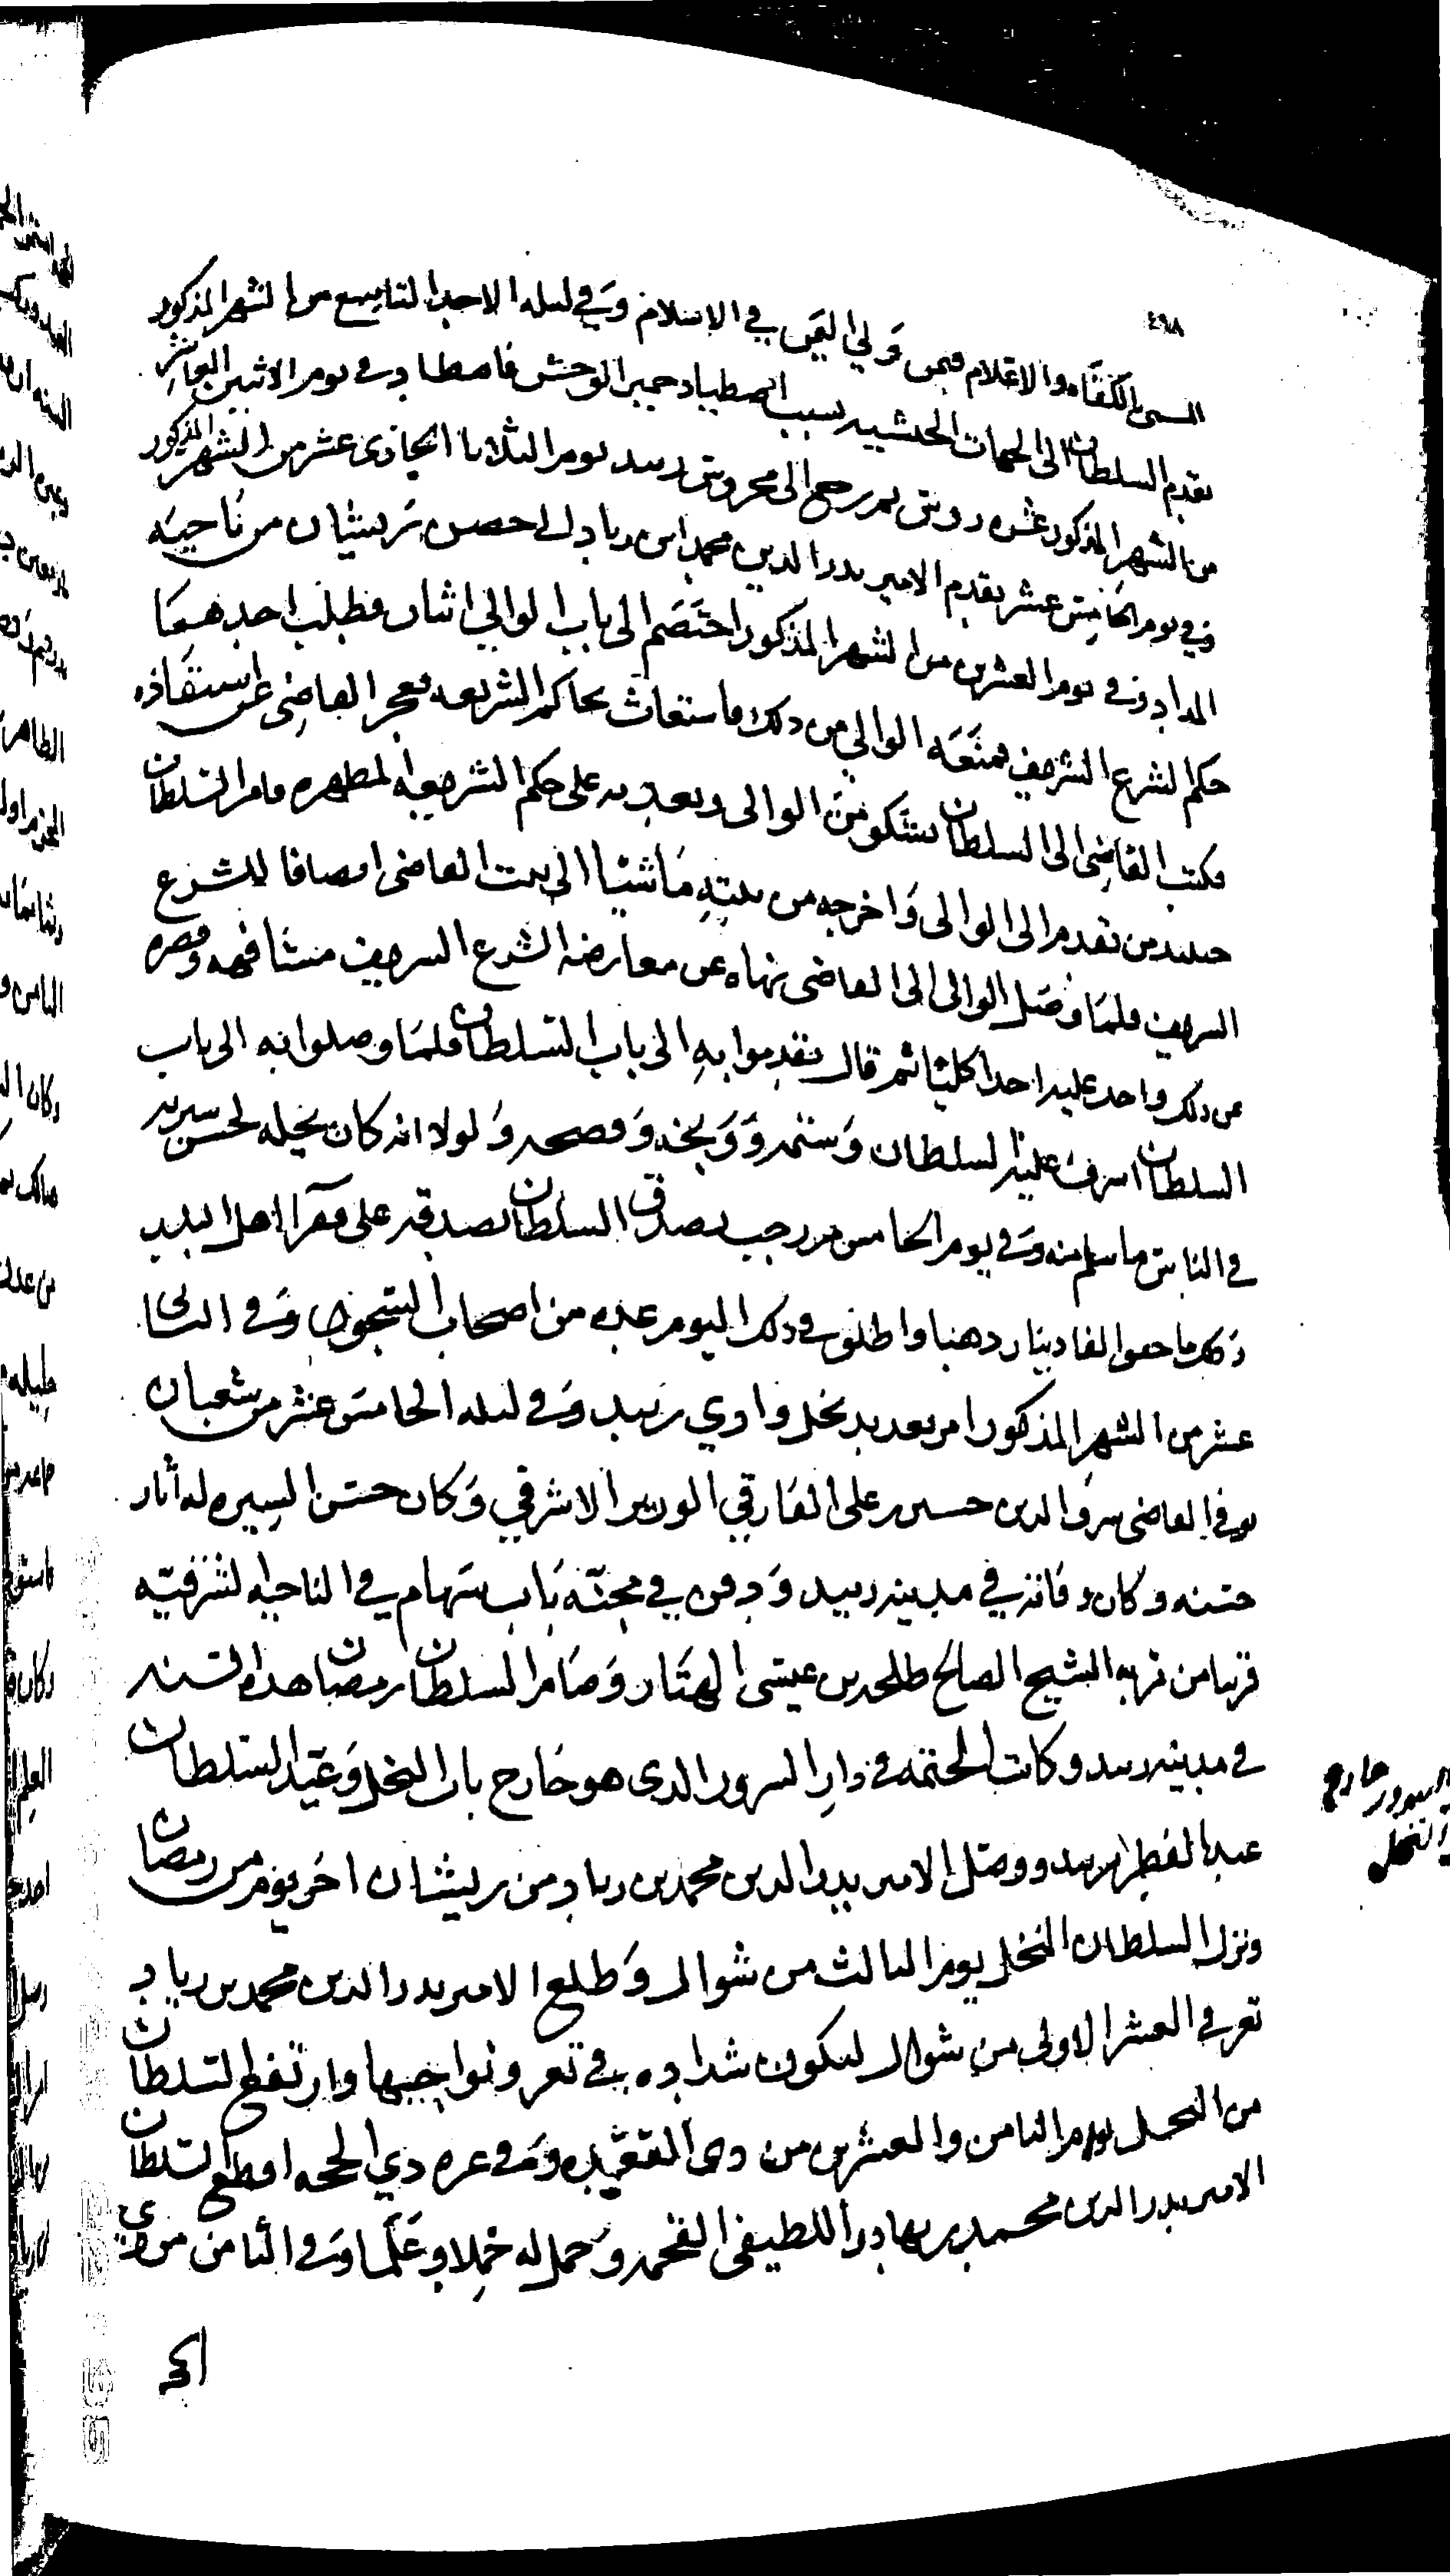 ٤٩٨
المسمى بالكفاه والاعلام فيمن ولي اليمن في الاسلام وفي ليله الاحد التاسع من الشهر المذكور
تقدم السلطان الى الجهات الحيشيه بسبب اصطياد حمير الوحش فاصطاد وفي يوم الاثنين العاشر
من الشهر المذكور عشره روس ثم رجع الى محروس زبيد يوم الثلاثا الحادي عشر من الشهر المذكور
وفي يوم الخامس عشر تقدم الامير بدر الدين محمد ابن زياد الى حصن بريشان من ناحيه
المداد وفي يوم العشرين من الشهر المذكور اختصم الى باب الوالي اثنان فطلب احدهما
حكم الشرع الشريف فمنعه الوالي من ذلك فاستغاث بحاكم الشريعه فعجز القاضي عن استنقاذه
فكتب القاضي الى السلطان يشكو من الوالي وتعديه على حكم الشريعه المطهره فامر السلطان
حينيد من تقدم الى الوالي واخرجه من بيته ماشيا الى بيت القاضي امصافا للشرع
الشريف فلما وصل الوالي الى القاضي نهاه عن معارضه الشرع الشريف مشافهه وقصره
عن ذلك واخذ عليه اخذا كليا ثم قال تقدموا به الى باب السلطان فلما وصلوا به الى باب
السلطان اشرف عليه السلطان وشتمه ووبخه وفضحه ولولا انه كان يخيله لحسن سيرته
في الناس ما سلم منه وفي يوم الخامس من رجب تصدق السلطان بصدقه على فقرا اهل البلد
ذكر ما حموا الفا دينار ذهبا واطلق في ذلك اليوم عده من اصحاب السجون وفي الثاني
عشر من الشهر المذكور امر بعديد نخل وادي زبيد وفي ليله الخامس عشر من شعبان
توفي القاضي شرف الدين حسين بن علي الفارقي الوزير الاشرفي وكان حسن السيره له اثار
حسنه وكان وفاته في مدينه زبيد ودفن في مجنه باب سهام في الناحيه الشرقيه
قريبا من تربه الشيخ الصالح طلحه بن عيسى الهتار وصام السلطان رمضان هذه السنه
في مدينه زبيد وكانت الختمه في دار السرور الذي هو خارج باب النخل وعيد السلطان
عيد الفطر بزبيد ووصل الامير بدر الدين محمد بن زياد من ريشان اخر يوم من رمضان
ونزل السلطان النخل يوم الثالث من شوال وطلع الامير بدر الدين محمد بن زياد
تعز في العشر الاولى من شوال ليكون شداده في تعز ونواحيها وارتفع السلطان
من النخل يوم الثامن والعشرين من ذي القعده وفي غره ذي الحجه اقطع السلطان
الامير بدر الدين محمد بن بهادر اللطيفي الفحمه وحمل له حملا وعلما وفي الثامن من ذي
السرور خارج
النخل